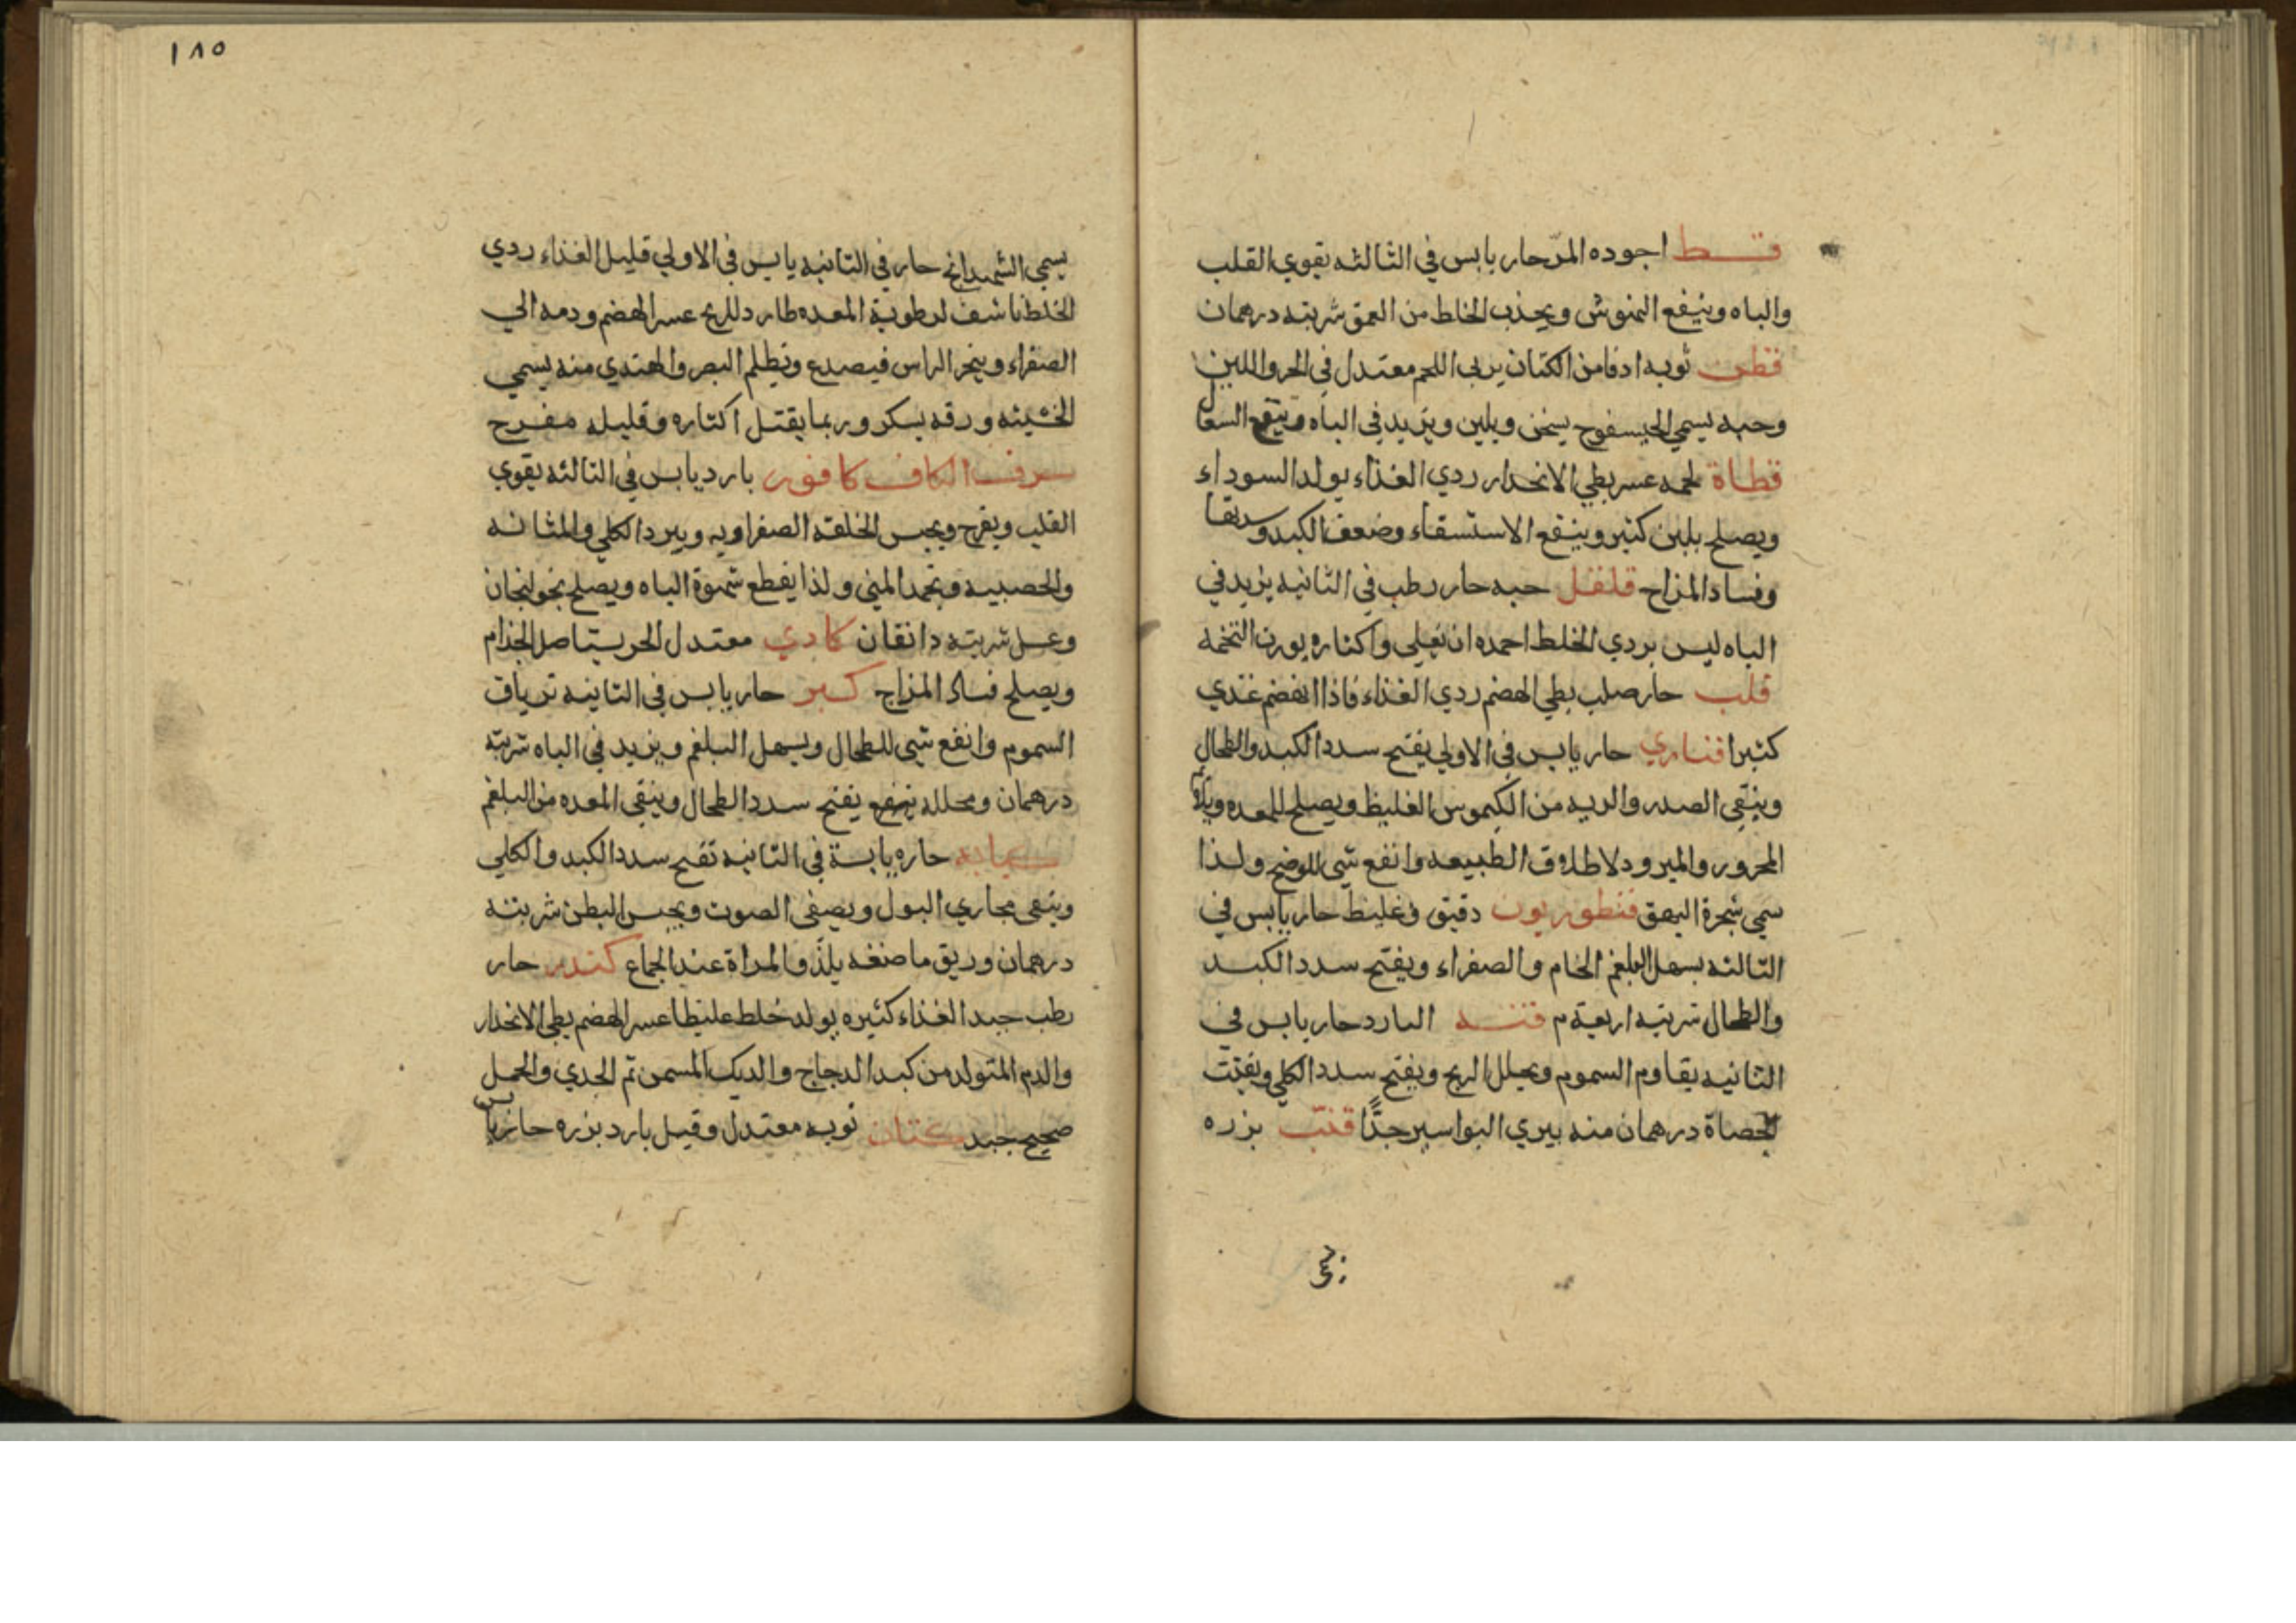 قسط اجوده المرّ حار يابس في الثالثه يقوي القلب
والباه وينفع النهوش ويجذب الخلط من العمق شربته درهمان
قطن ثوبه ادفا من الكتان يربي اللحم معتدل في الحر واللين
وحبه يسمي الحيسفوج يسخن ويلين ويزيد في الباه وينفع السعال
قطاة لحمه عسر بطي الانحدار ردي الغذاء يولد السوداء
ويصلح بلبن كثير وينفع الاستسقاء وضعف الكبد
وفساد المزاج قلقل حبه حار رطب في الثانيه يزيد في
الباه ليس بردي الخلط احمده ان يغلي واكثاره يورث التخمه
قلب حار صلب بطي الهضم ردي الغذاء فاذا انهضم غذي
كثيرا قنابري حار يابس في الاولي يفتح سدد الكبد والطحال
وينقي الصدر والريه من الكيموس الغليظ ويصلح للمعده
المحرور والمبرود لاطلاق الطبيعه وانفع شي للوضح ولذا
سمي شجرة البهق قنطوريون دقيق وغليظ حار يابس في
الثالثه يسهل البلغم الخام والصفراء ويفتح سدد الكبد
والطحال شربته اربعة م قنه البارد حار يابس في
الثانيه يقاوم السموم ويحلل الريح ويفتح سدد الكلي ويفتت
الحصاة درهمان منه يبري البواسير جدًّا قنب بزره
١٨٥
يسمي الشهدانج حار في الثانيه يابس في الاولي قليل الغذاء ردي
الخلط ناشف لرطوبة المعده طارد للريح عسر الهضم ودمه الي
الصفراء ويبخر الراس فيصدع ويظلم البصر والهندي منه يسمي
الحشيشه ورقه يسكر وربما يقتل اكثاره وقليله مفرح
حرف الكاف كافور بارد يابس في الثالثه يقوي
القلب ويفرح ويحبس الخلفة الصفراويه ويبرد الكلي والمثانه
والحصبيه ويجمد المني ولذا يقطع شهوة الباه ويصلح بخولنجان
وعسل شربته دانقان كادي معتدل الحر يستاصل الجذام
ويصلح فساد المزاج كبر حار يابس في الثانيه ترياق
السموم وانفع شي للطحال ويسهل البلغم ويزيد في الباه شربته
درهمان ومخلله ينفع يفتح سدد الطحال وينقي المعده من البلغم
كبابه حاره يابسة في الثانيه تفتح سدد الكبد والكلي
وينقي مجاري البول ويصفي الصوت ويحبس البطن شربته
درهمان وريق ماضغه يلذّ المراة عند الجماع كندر حار
رطب جيد الغذاء كثيره يولد خلط غليظا عسر الهضم بطي الانحدار
والدم المتولد من كبد الدجاج والديك المسمن ثم الجدي والحمل
صحيح جيد كتان ثوبه معتدل وقيل بارد بزره حار يابس